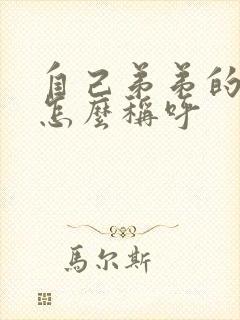 自己弟弟的
怎麼稱呼
馬尔斯